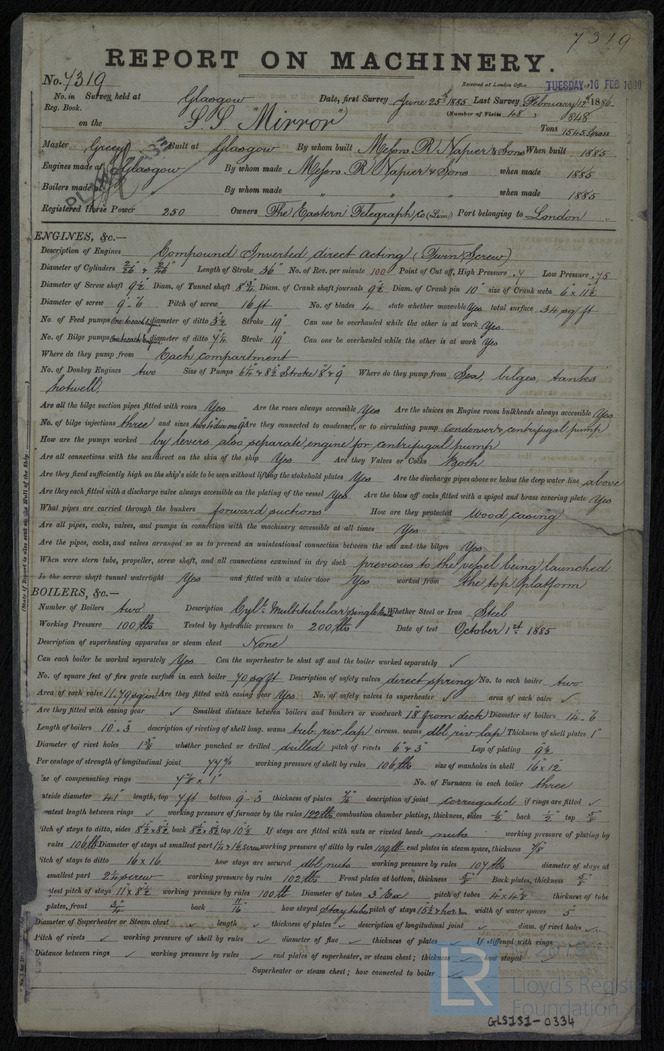 7319
REPORT ON MACHINERY.
No. 7319
Received at London Office TUESDAY 16 FEB 1886
No. in Survey held at Glasgow Date, first Survey June 25th 1885 Last Survey February 12th 1886
Reg. Book. (Number of Visits 48)
on the S.S. "Mirror" Tons 1545 Gross
Master Built at Glasgow By whom built Messrs R Napier & Sons When built 1885
Engines made at Glasgow By whom made Messrs R Napier & Sons when made 1885
Boilers made at By whom made " " when made 1885
Registered Horse Power 250 Owners The Eastern Telegraph Co (Lim.) Port belonging to London
ENGINES, &c.—
Description of Engines Compound Inverted direct acting (Twin Screw)
Diameter of Cylinders Length of Stroke 36" No. of Rev. per minute 100 Point of Cut off, High Pressure .7 Low Pressure .75
Diameter of Screw shaft 9½ Diam. of Tunnel shaft Diam. of Crank shaft journals 9½ Diam. of Crank pin 10" size of Crank webs 6" x 11½
Diameter of screw 9'-6" Pitch of screw 16 ft No. of blades 4 state whether moveable Yes total surface 34 sq ft
No. of Feed pumps diameter of ditto 3½ Stroke 19" Can one be overhauled while the other is at work Yes
No. of Bilge pumps diameter of ditto Stroke 19" Can one be overhauled while the other is at work Yes
Where do they pump from Each compartment
No. of Donkey Engines two Size of Pumps Stroke 8 & 9 Where do they pump from Sea, bilges, tanks
hotwell
Are all the bilge suction pipes fitted with roses Yes Are the roses always accessible Yes Are the sluices on Engine room bulkheads always accessible Yes
No. of bilge injections three and sizes Are they connected to condenser, or to circulating pump condenser & centrifugal pump
How are the pumps worked by levers also separate engine for centrifugal pump
Are all connections with the sea direct on the skin of the ship Yes Are they Valves or Cocks Both
Are they fixed sufficiently high on the ship's side to be seen without lifting the stokehold plates Yes Are the discharge pipes above or below the deep water line above
Are they each fitted with a discharge valve always accessible on the plating of the vessel Yes Are the blow off cocks fitted with a spigot and brass covering plate Yes
What pipes are carried through the bunkers forward suctions How are they protected Wood casing
Are all pipes, cocks, valves, and pumps in connection with the machinery accessible at all times Yes
Are the pipes, cocks, and valves arranged so as to prevent an unintentional connection between the sea and the bilges Yes
When were stern tube, propeller, screw shaft, and all connections examined in dry dock previous to the vessel being launched
Is the screw shaft tunnel watertight Yes and fitted with a sluice door Yes worked from the top platform
BOILERS, &c.—
Number of Boilers two Description Cyl. Multitubular Whether Steel or Iron Steel
Working Pressure 100 lbs Tested by hydraulic pressure to 200 lbs Date of test October 1st 1885
Description of superheating apparatus or steam chest None
Can each boiler be worked separately Yes Can the superheater be shut off and the boiler worked separately ✓
No. of square feet of fire grate surface in each boiler 70 sq ft Description of safety valves direct spring No. to each boiler two
Area of each valve 11.79 sq in Are they fitted with easing gear Yes No. of safety valves to superheater ✓ area of each valve ✓
Are they fitted with easing gear ✓ Smallest distance between boilers and bunkers or woodwork 18" from deck Diameter of boilers 14'-6"
Length of boilers 10'-3" description of riveting of shell long. seams treb. riv lap circum. seams dbl riv lap Thickness of shell plates 1"
Diameter of rivet holes whether punched or drilled drilled pitch of rivets Lap of plating 9½
Percentage of strength of longitudinal joint 77% working pressure of shell by rules 106 lbs size of manholes in shell 16 x 12
size of compensating rings No. of Furnaces in each boiler three
outside diameter 41" length, top 7 ft bottom 9'-3" thickness of plates description of joint corrugated if rings are fitted ✓
greatest length between rings ✓ working pressure of furnace by the rules 122 lbs combustion chamber plating, thickness, sides back top
Pitch of stays to ditto, sides 8½ x 8½ back 8½ x 8½ top 10½ If stays are fitted with nuts or riveted heads nuts working pressure of plating by
rules 106 lbs Diameter of stays at smallest part working pressure of ditto by rules 109 lbs end plates in steam space, thickness ⅞
Pitch of stays to ditto 16 x 16 how stays are secured dbl nuts working pressure by rules 107 lbs diameter of stays at
smallest part working pressure by rules 102 lbs Front plates at bottom, thickness Back plates, thickness
greatest pitch of stays 11 x 8½ working pressure by rules 100 lbs Diameter of tubes 3" pitch of tubes 4½ x 4½ thickness of tube
plates, front ¾ back 11/16 how stayed stay tubes pitch of stays width of water spaces 5"
Diameter of Superheater or Steam chest ✓ length ✓ thickness of plates ✓ description of longitudinal joint ✓ diam. of rivet holes ✓
Pitch of rivets ✓ working pressure of shell by rules ✓ diameter of flue ✓ thickness of plates ✓ If stiffened with rings
Distance between rings ✓ working pressure by rules ✓ end plates of superheater, or steam chest; thickness ✓ how stayed
Superheater or steam chest; how connected to boiler
LR
© 2019
Lloyd's Register
Foundation
GLS151-0334